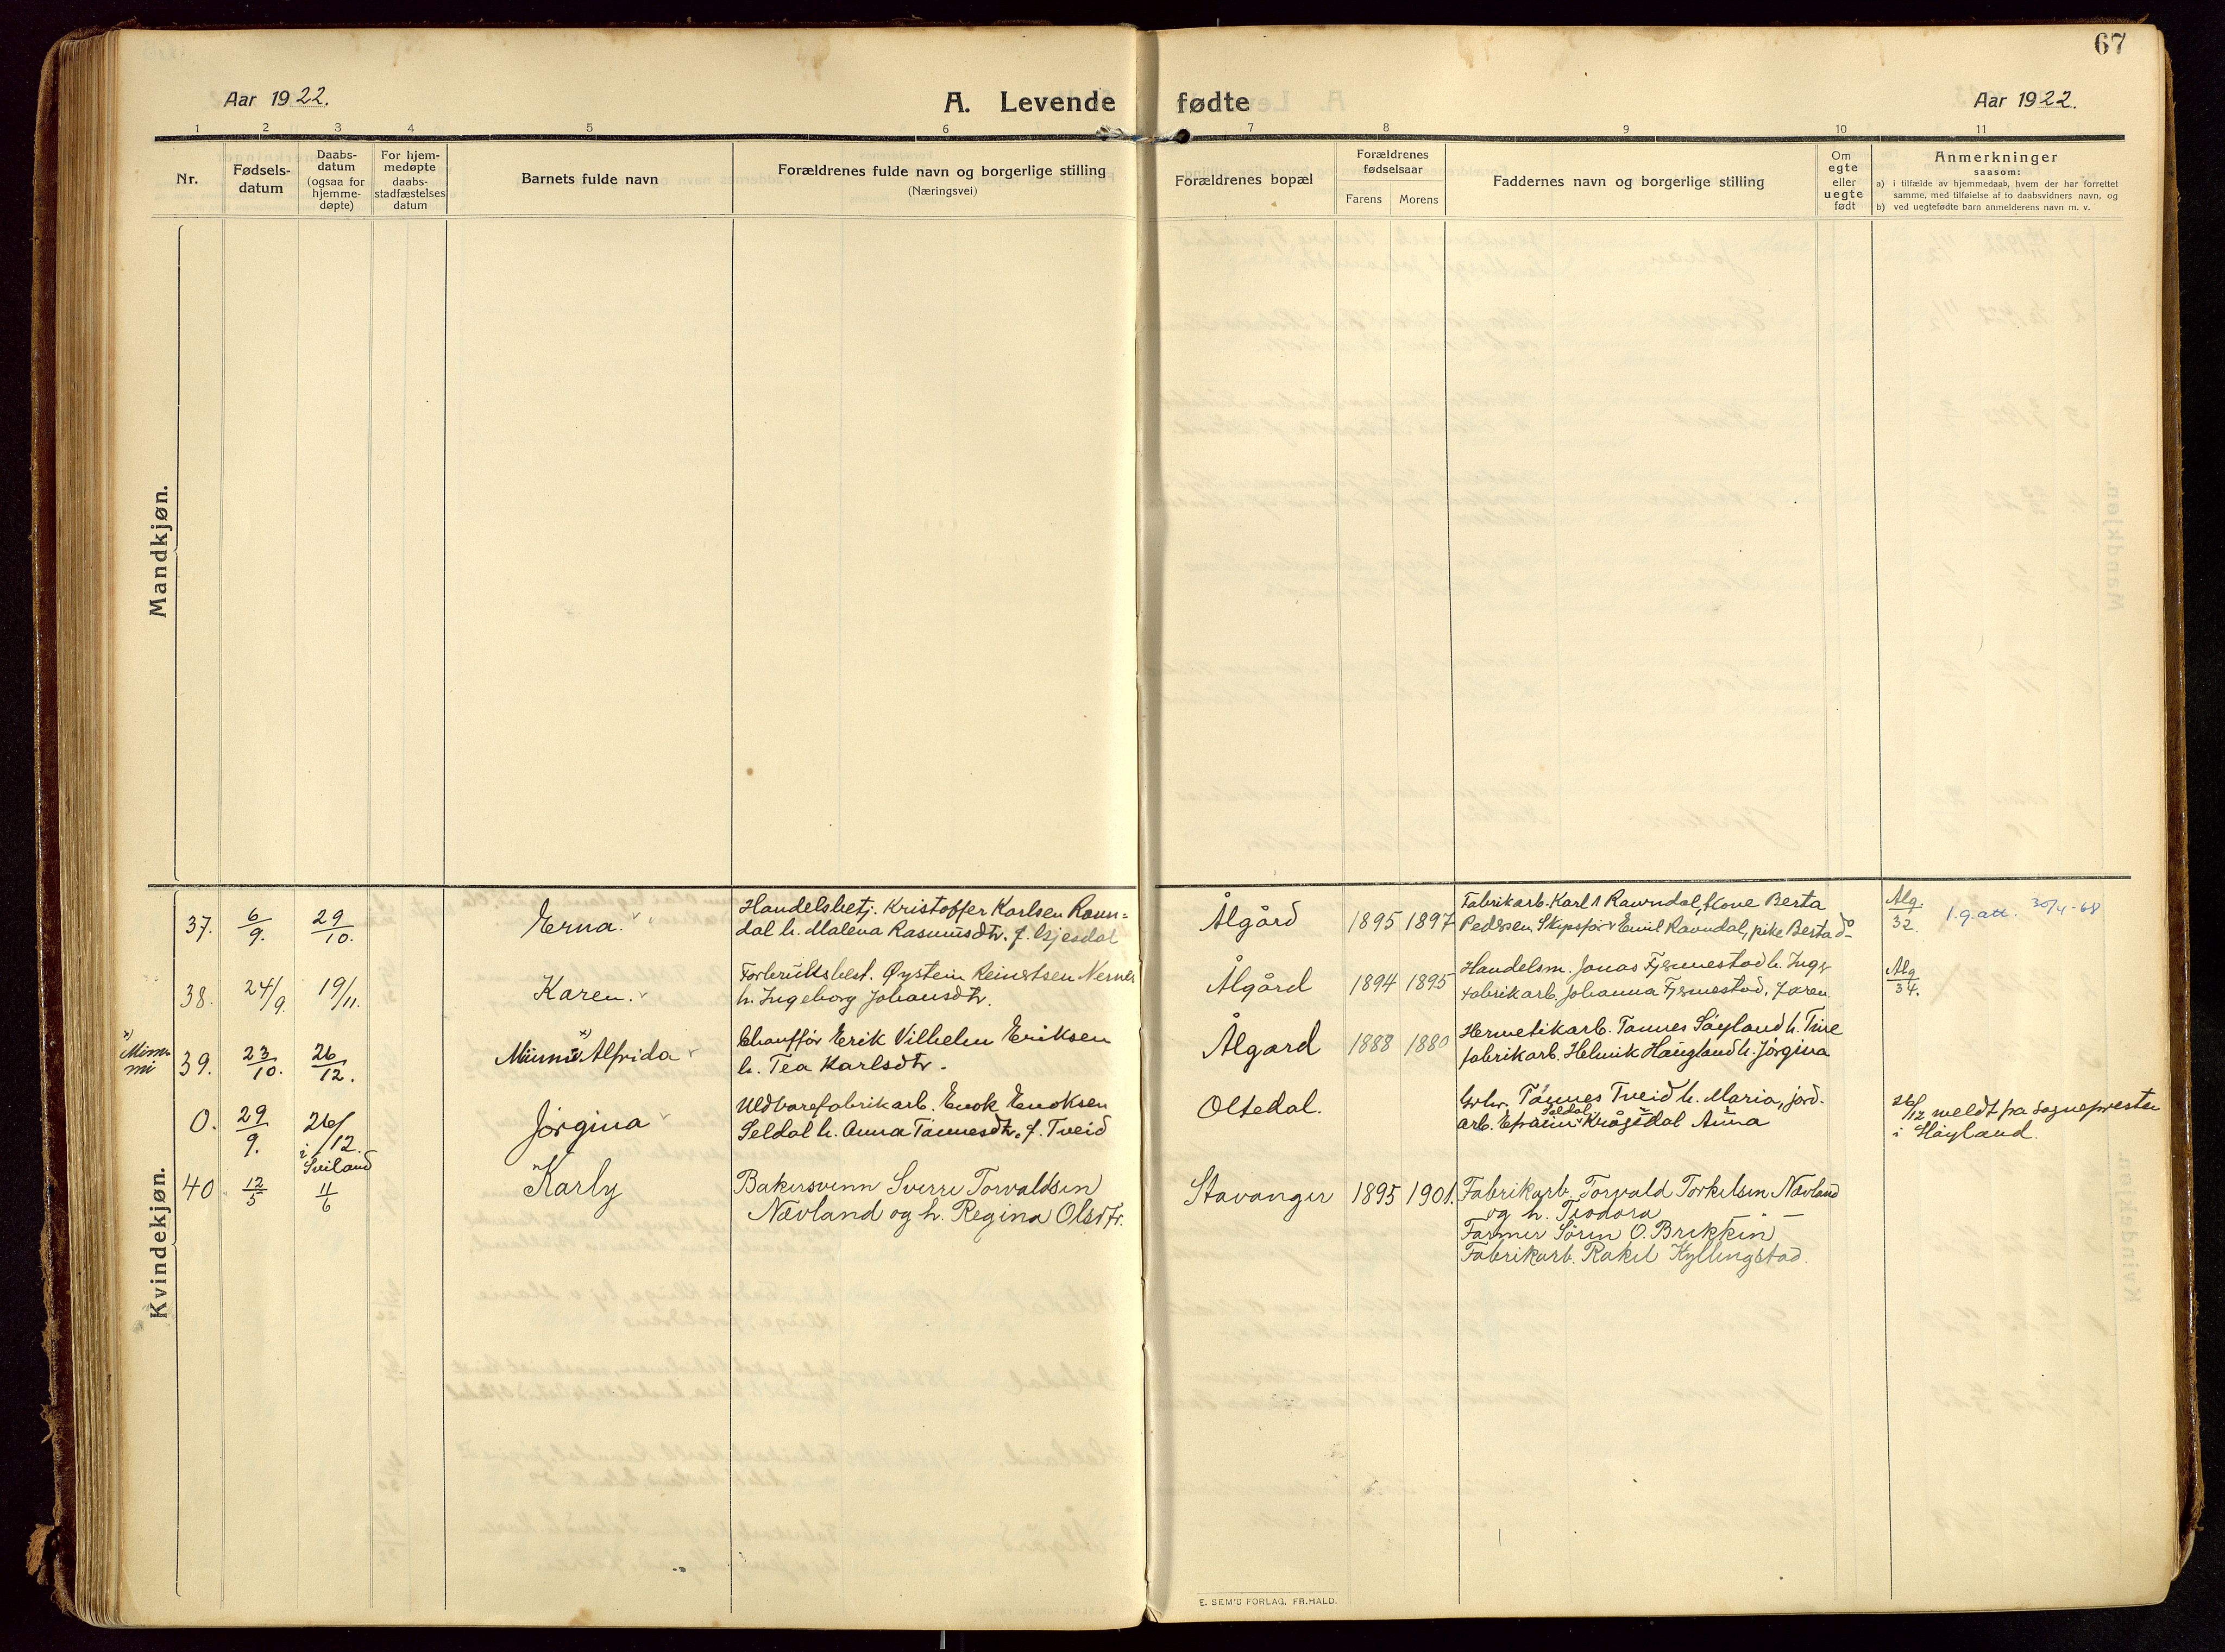 67
Aar 1922.
A. Levende fødte
Aar 1922.
1 2 3 4 5 6 7 8 9 10 11
Nr.
Fødsels-
datum
Daabs-
datum
(ogsaa for
hjemme-
døpte)
For hjem-
medøpte
daabs-
stadfæstelses
datum
Barnets fulde navn
Forældrenes fulde navn og borgerlige stilling
(Næringsvei)
Forældrenes bopæl
Forældrenes
fødselsaar
Farens
Morens
Faddernes navn og borgerlige stilling
Om
egte
eller
uegte
født
Anmerkninger
saasom:
a) i tilfælde av hjemmedaab, hvem der har forrettet
samme, med tilføielse af to daabsvidners navn, og
b) ved uegtefødte barn anmelderens navn m. v.
Mandkjøn.
Kvindekjøn.
37. 6/9. 29/10. Erna.
Handelsbetj. Kristoffer Karlsen Raun=
dal h. Malena Rasmusdtr. f. Gjesdal
Ålgård 1895 1897
Fabrikarb. Karl Ravndal, kone Berta
Pedersen Skipsfør Emil Ravndal, pike Berta do
Alg. 32. 30/4-68
38. 24/9. 19/11. Karen.
Forbruksbest. Øystein Reinertsen Nesnes
h. Ingeborg Johansdtr.
Ålgård 1894 1895
Handelsm. Jonas Fjermestad h. Inger
Fabrikarb. Johanna Fjermestad, Jæren
Alg 34.
x) Mimmi
39. 23/10. 26/12. x) Alfrida
Chauffør Erik Vilhelm Eriksen
h. Tea Karlsdtr.
Ålgard 1888 1880
Hermetikarb. Tønnes Søyland h. Trine
fabrikarb. Helmik Haugland h. Jørgina
0. 29/9. 26/12. i Sviland Jørgina
Uldvarefabrikarb. Enok Enoksen
Seldal h. Anna Tønnesdtr. f. Tveid
Oltedal.
Grbr. Tønnes Tveid h. Maria, jord.
arb. Efraim Seldal Krågedal Anna
26/12 meldt fra sognepresten
i Høyland.
40 12/5 11/6 Karly
Bakersvenn Sverre Torvaldsen
Nævland og h. Regina Olsdtr.
Stavanger 1895 1901.
Fabrikarb. Torvald Torkelsen Nævland
og h. Teodora
Farmer Søren O. Brekken
Fabrikarb. Rakel Kyllingstad.
E. SEM'S FORLAG, FR.HALD.